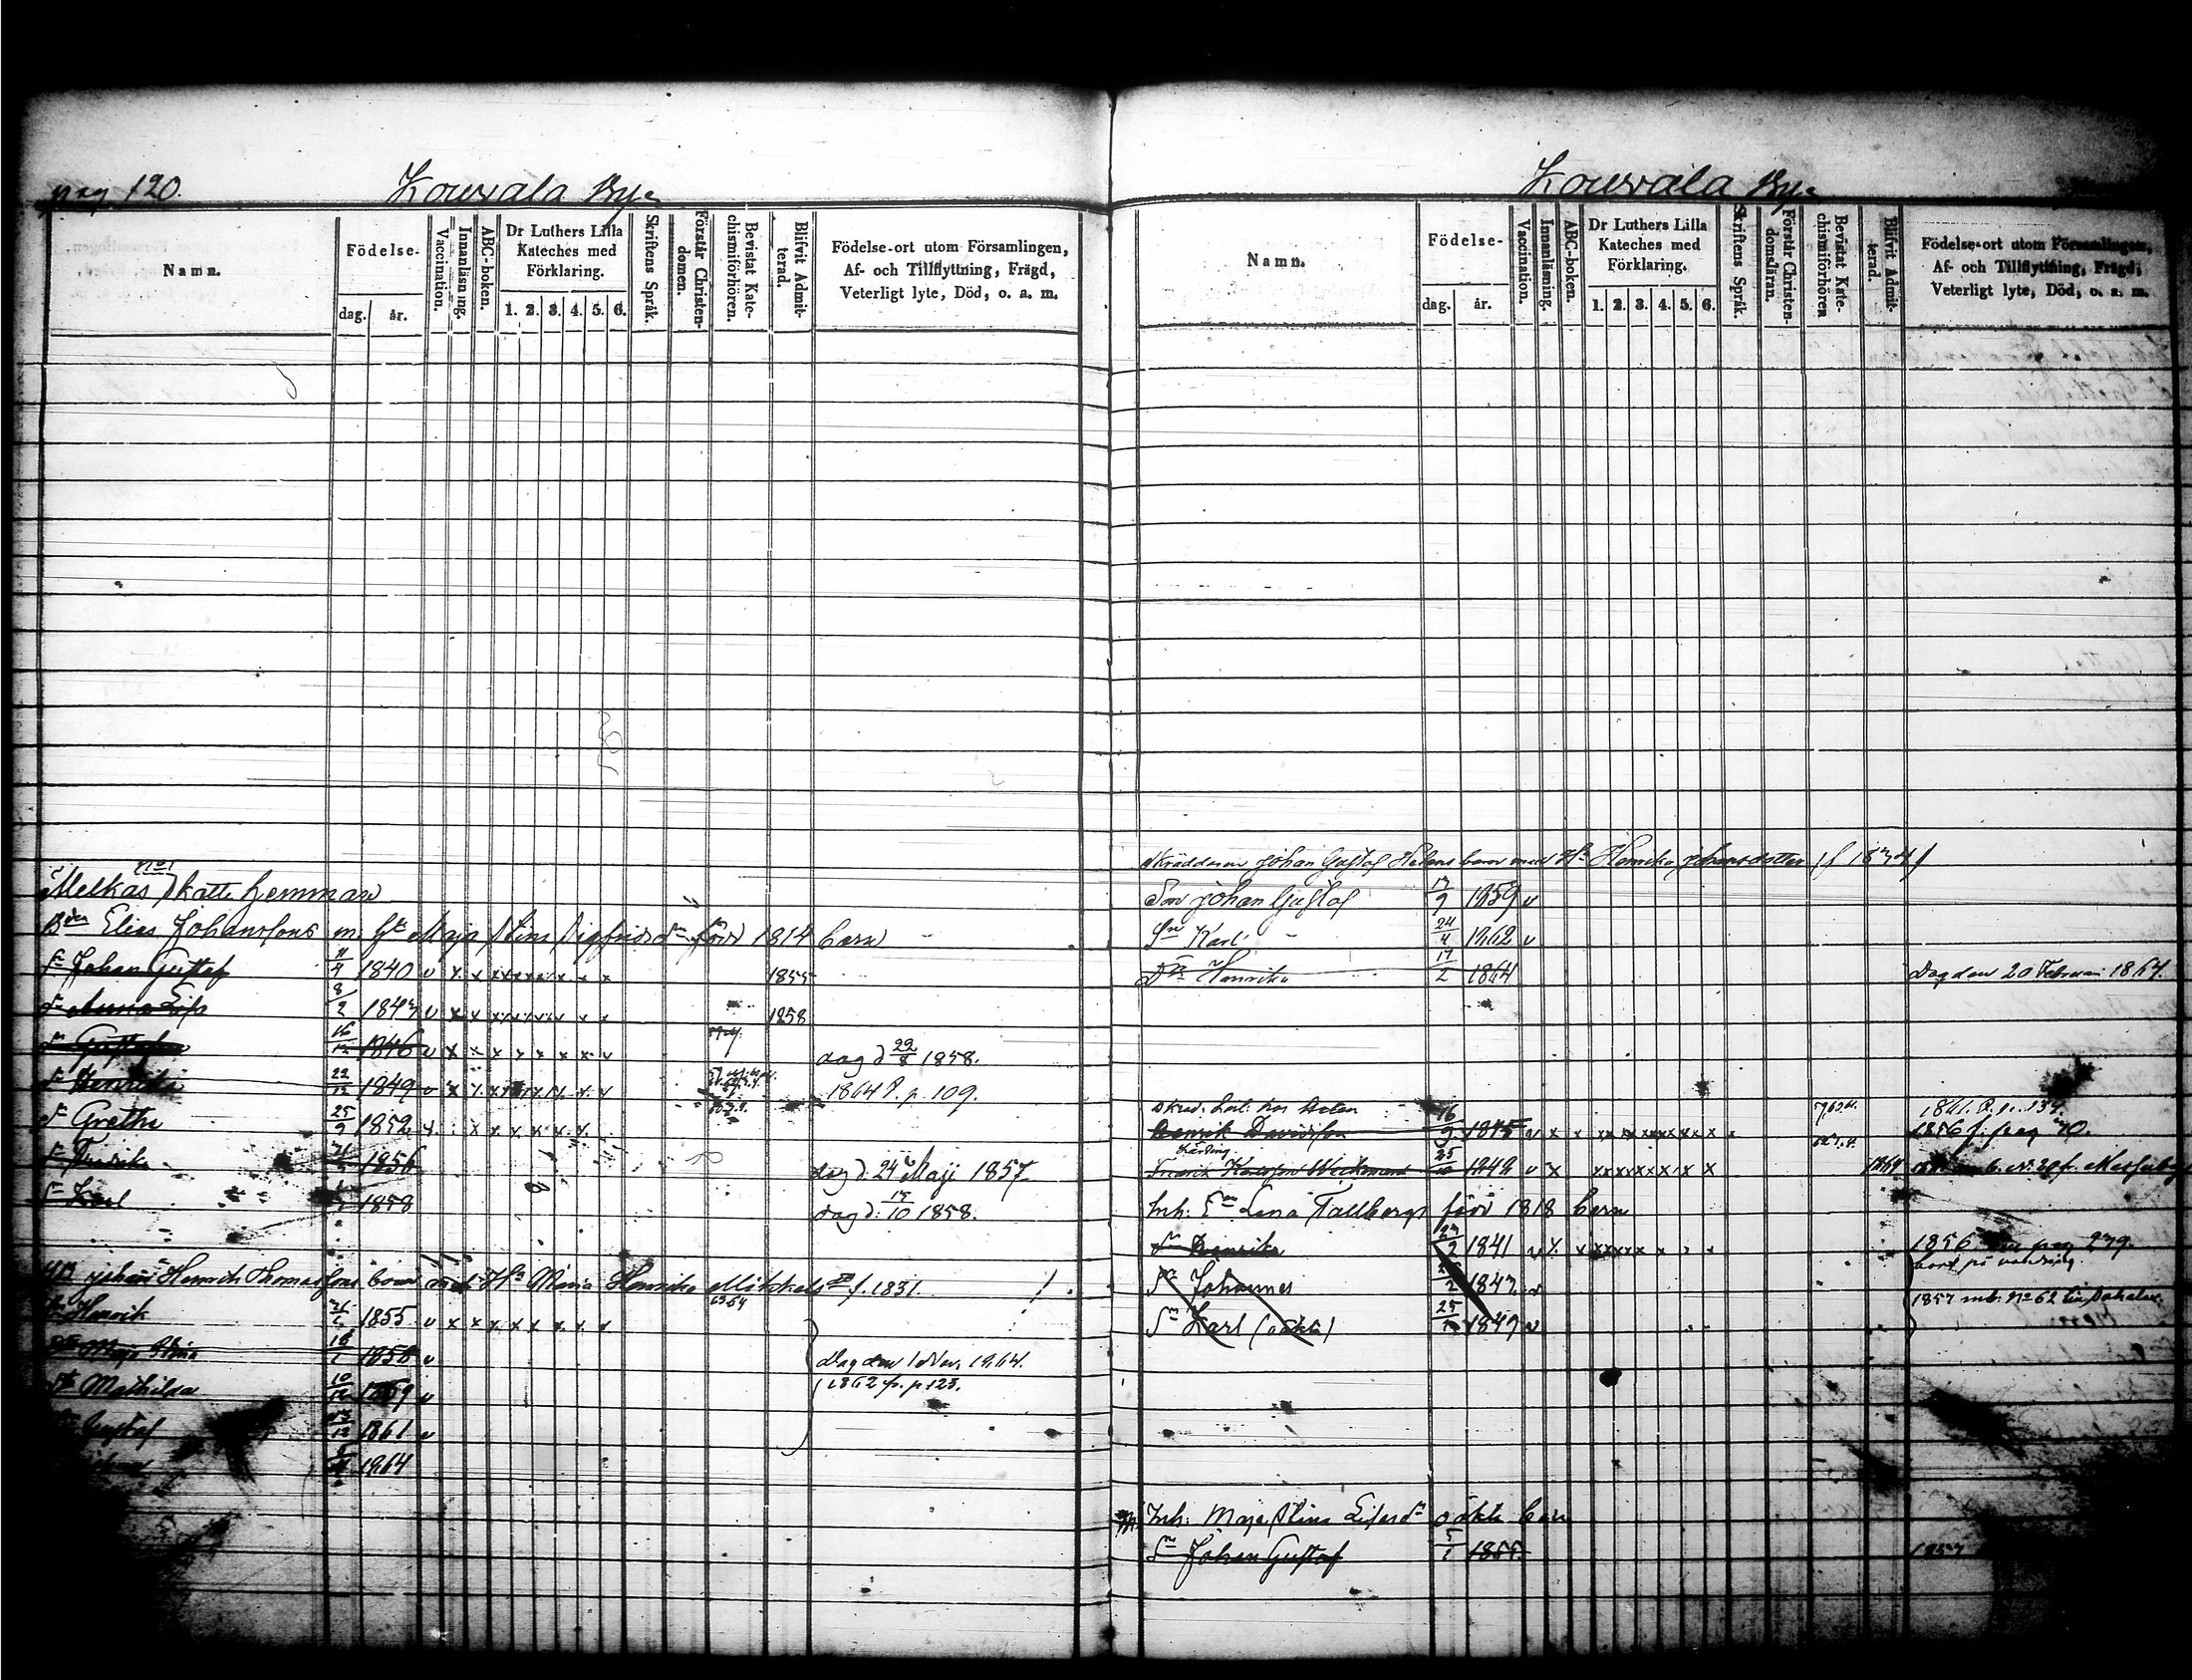 pag 120.
Kouvala By.
Namn.
Födelse-
dag. år.
Vaccination.
Innanläsning.
ABC-boken.
Dr Luthers Lilla Kateches med Förklaring.
1. 2. 3. 4. 5. 6.
Skriftens Språk.
Förstår Christendomen.
Bevistat Katechismiförhören.
Blifvit Admitterad.
Födelse-ort utom Församlingen,
Af- och Tillflyttning, Frägd,
Veterligt lyte, Död, o. a. m.
No 1
Melkas Skatte hemman
Bden Elias Johanssons m. Hu Maja Stina Sigfrids dr född 1814 barn
Sn Johan Gustaf 11/4 1840 v x x x x x x x x x 1855
Dr Anna Lisa 8/2 1843 v x x x x x x x x 1858
16/12 1846 v x x x x x x x v dag d 22/8 1858.
Dr Henrika 22/12 1849 v x x x x x x x x 1864 p. 109.
Dr Greta 25/9 1852 v x x x x x x
Dr Fredrika 1856 dog d. 24 Maji 1857
Sn Karl 1858 dog d. 15/10 1858.
Johan Henrik Thomassons barn med Hu Maria Henrika Michels dr f. 1831.
Sn Henrik 1855 v x x x x x x x x
Dr Maja Stina 1858 v Dog den 1 Nov. 1864.
Dr Mathilda 10/12 1859 v 1862 fr. p 123.
Gustaf 1861 v
1864
Kouvala By.
Namn.
Födelse-
dag. år.
Vaccination.
Innanläsning.
ABC-boken.
Dr Luthers Lilla Kateches med Förklaring.
1. 2. 3. 4. 5. 6.
Skriftens Språk.
Förstår Christendomsläran.
Bevistat Katechismiförhören
Blifvit Admitterad.
Födelse-ort utom Församlingen,
Af- och Tillflyttning, Frägd,
Veterligt lyte, Död, o. a. m.
Skräddaren Johan Gustaf Helens barn med Hu Henrika Johansdotter (f 1834)
Son Johan Gustaf 13/9 1859 v
Sn Karl 24/4 1862 v
Dr Henrika 17/2 1864 Dog den 20 Februari 1864.
Henrik Davidsson 16/9 1845 v x x x x x x x x x 1856 f. pag 70.
Fredrik Karlsson Weckman 25/10 1848 v x x x x x x x x 1864
Inh. Ea Lena Tallbergs född 1818 barn
Dr Henrika 1841 v x x x x x x x 1856 pag 279.
Sn Johannes 1847 v
Sn Karl (oäkta) 25/ 1849 v 1857 mb. No 62
Inh. Maja Stina oäkta barn
Sn Johan Gustaf 5/1 1855. 1857